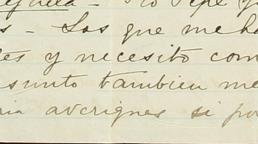 Tio Pepe
s - Los que me ha
es y necesito com
sunto tambien me
ria averigues si po